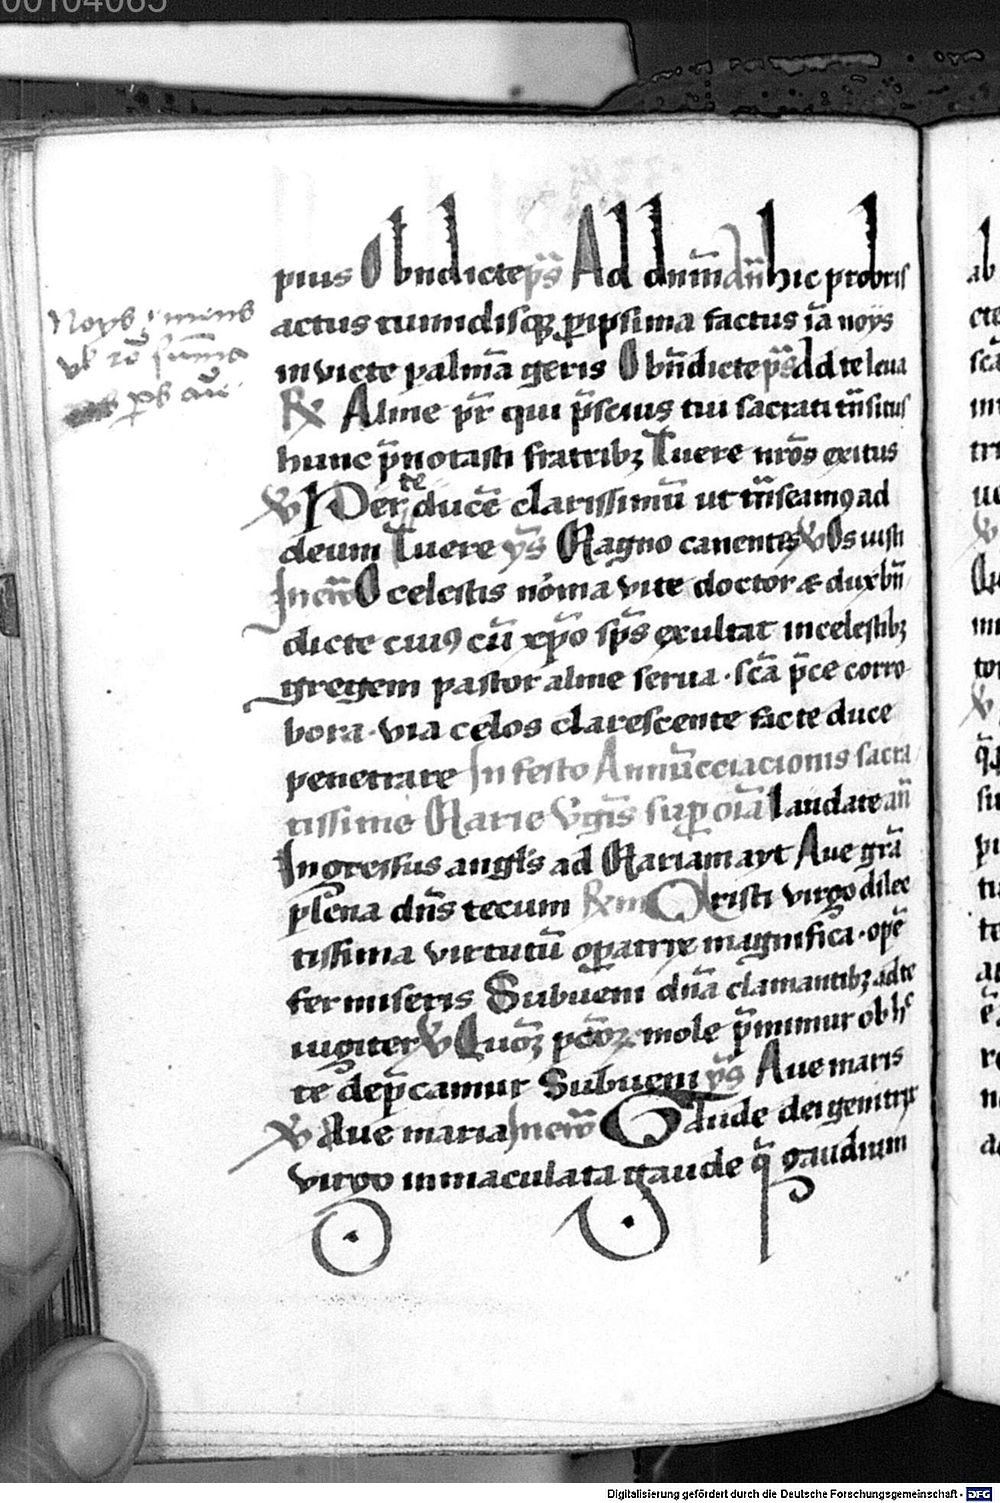 00104065
pius O bn̄dicte ps̄ Ad dnm̄ an̄ hic probris
actus tumidisq; ꝑipsima factus iā noys
invicte palmā geris O bn̄dicte ps̄ Ad te leua
℟ Alme pr̄ qui p̄scius tui sacrati tn̄situs
hunc p̄notasti fratribꝫ Tuere nr̄os exitus
℣ Per te ducē clarissimū ut tn̄seamꝰ ad
deum Tuere ℣s Magno canentes ℣ Os iusti
In ew̄ O celestis norma vite doctor & dux bn̄
dicte cuiꝰ cū xp̄o sp̄s exultat in celestibꝫ
gregem pastor alme serua · scā p̄ce corro
bora · via celos clarescente fac te duce
penetrare In festo Annūcciacionis sacra
tissime Marie v̄gīs suꝑ oīa Laudate an̄
Ingressus angl's ad Mariam ayt Aue grā
plena dn̄s tecum ℟m Christi virgo dilec
tissima virtutū oꝑatrix magnifica · opē
fer miseris Subueni dn̄a clamantibꝫ ad te
iugiter ℣ Quoꝫ pc̄oꝝ mole p̄mimur ob h'
te dep̄camur Subueni ℣s Aue maris
℣ Aue maria In ew̄ Gaude dei genitrix
virgo immaculata gaude q̄ gaudium
Noys · mens
vl' rō sum̄a
Digitalisierung gefördert durch die Deutsche Forschungsgemeinschaft - DFG